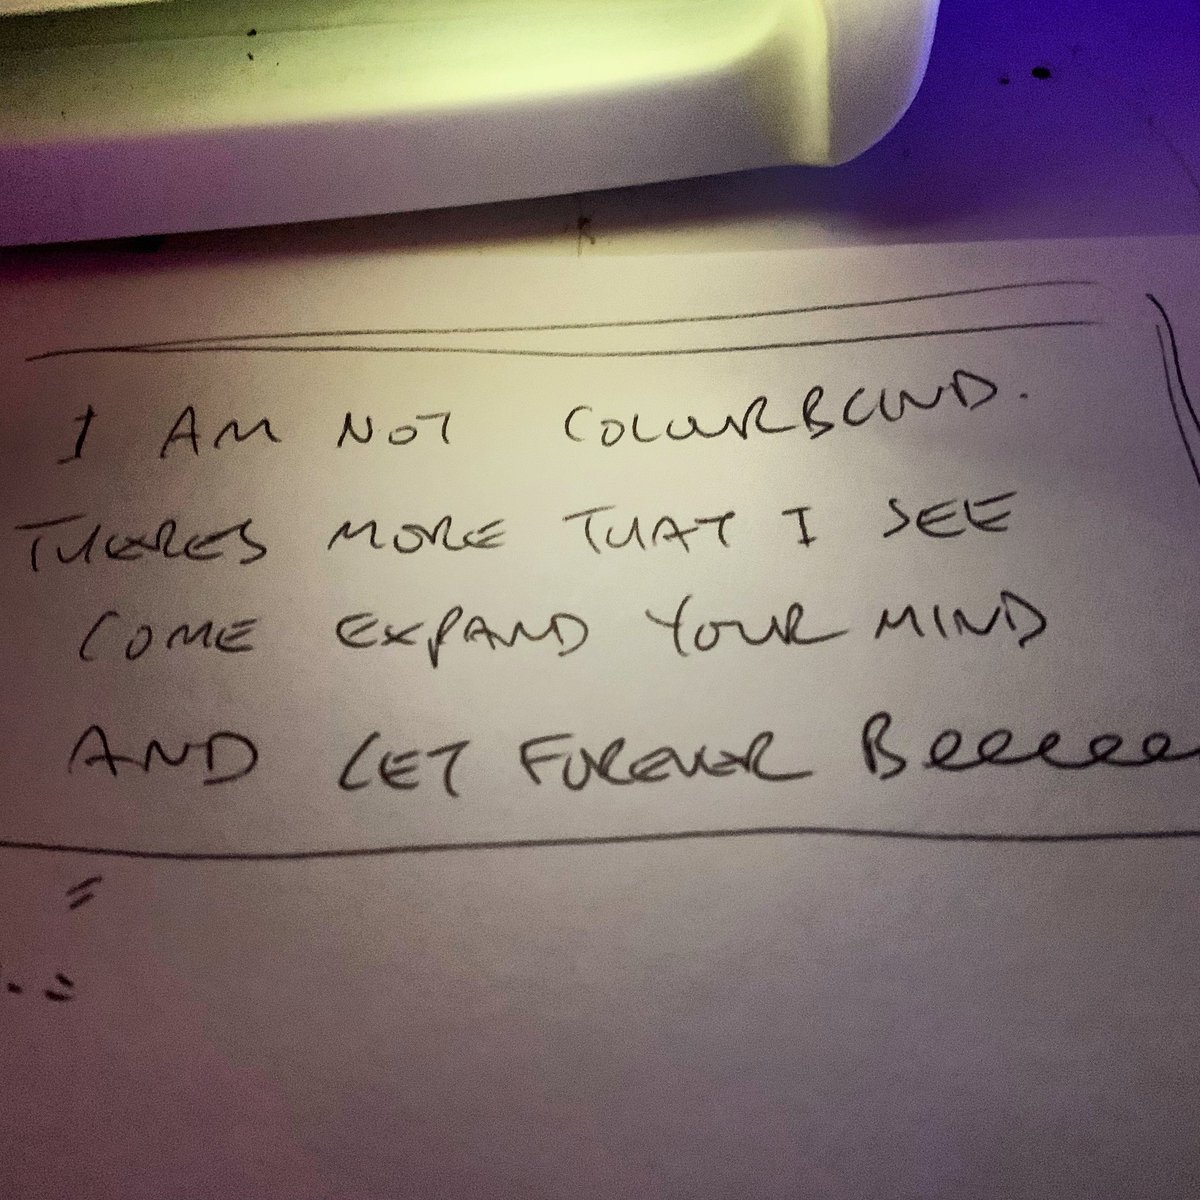 I AM NOT COLOURBLIND.
THERES MORE THAT I SEE
COME EXPAND YOUR MIND
AND LET FOREVER Beeeeee